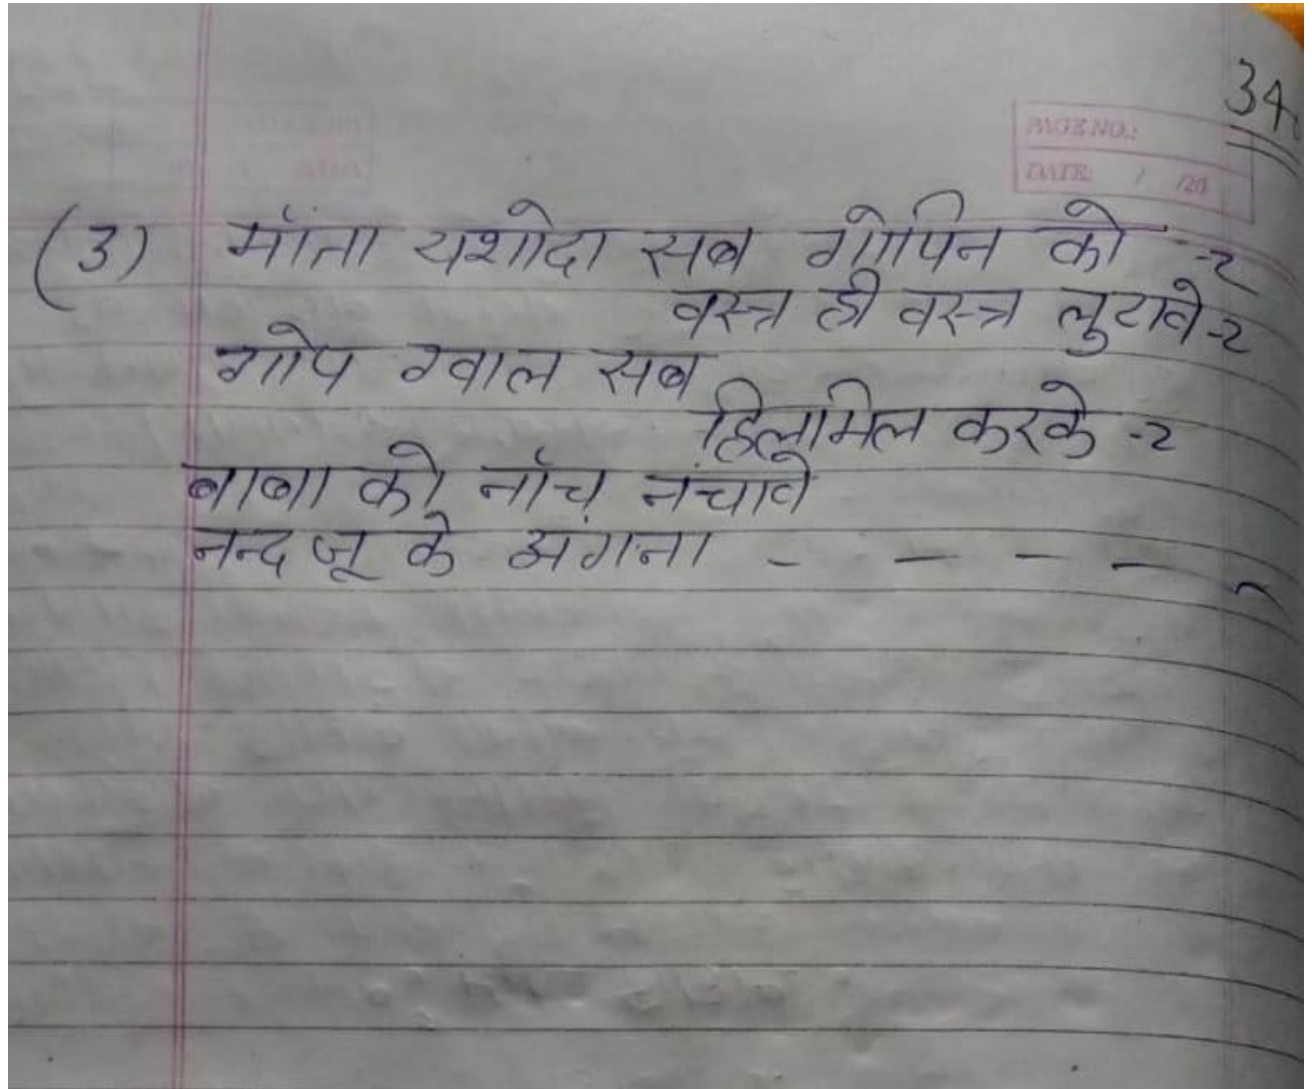 34
PAGE NO.:
DATE: / /20
(3) मॉता यशोदा सब गोपिन को -2
वस्त्र ही वस्त्र लुटावे -2
गोप ग्वाल सब
हिलमिल करके -2
बाबा को नॉच नंचावे
नन्द जू के अंगना - - - - -